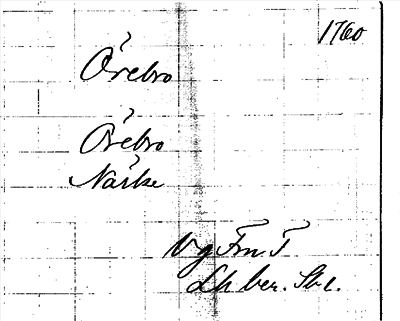 1760
Örebro
Örebro
Närke
Vg Fm. T
Lh ber. Sk.